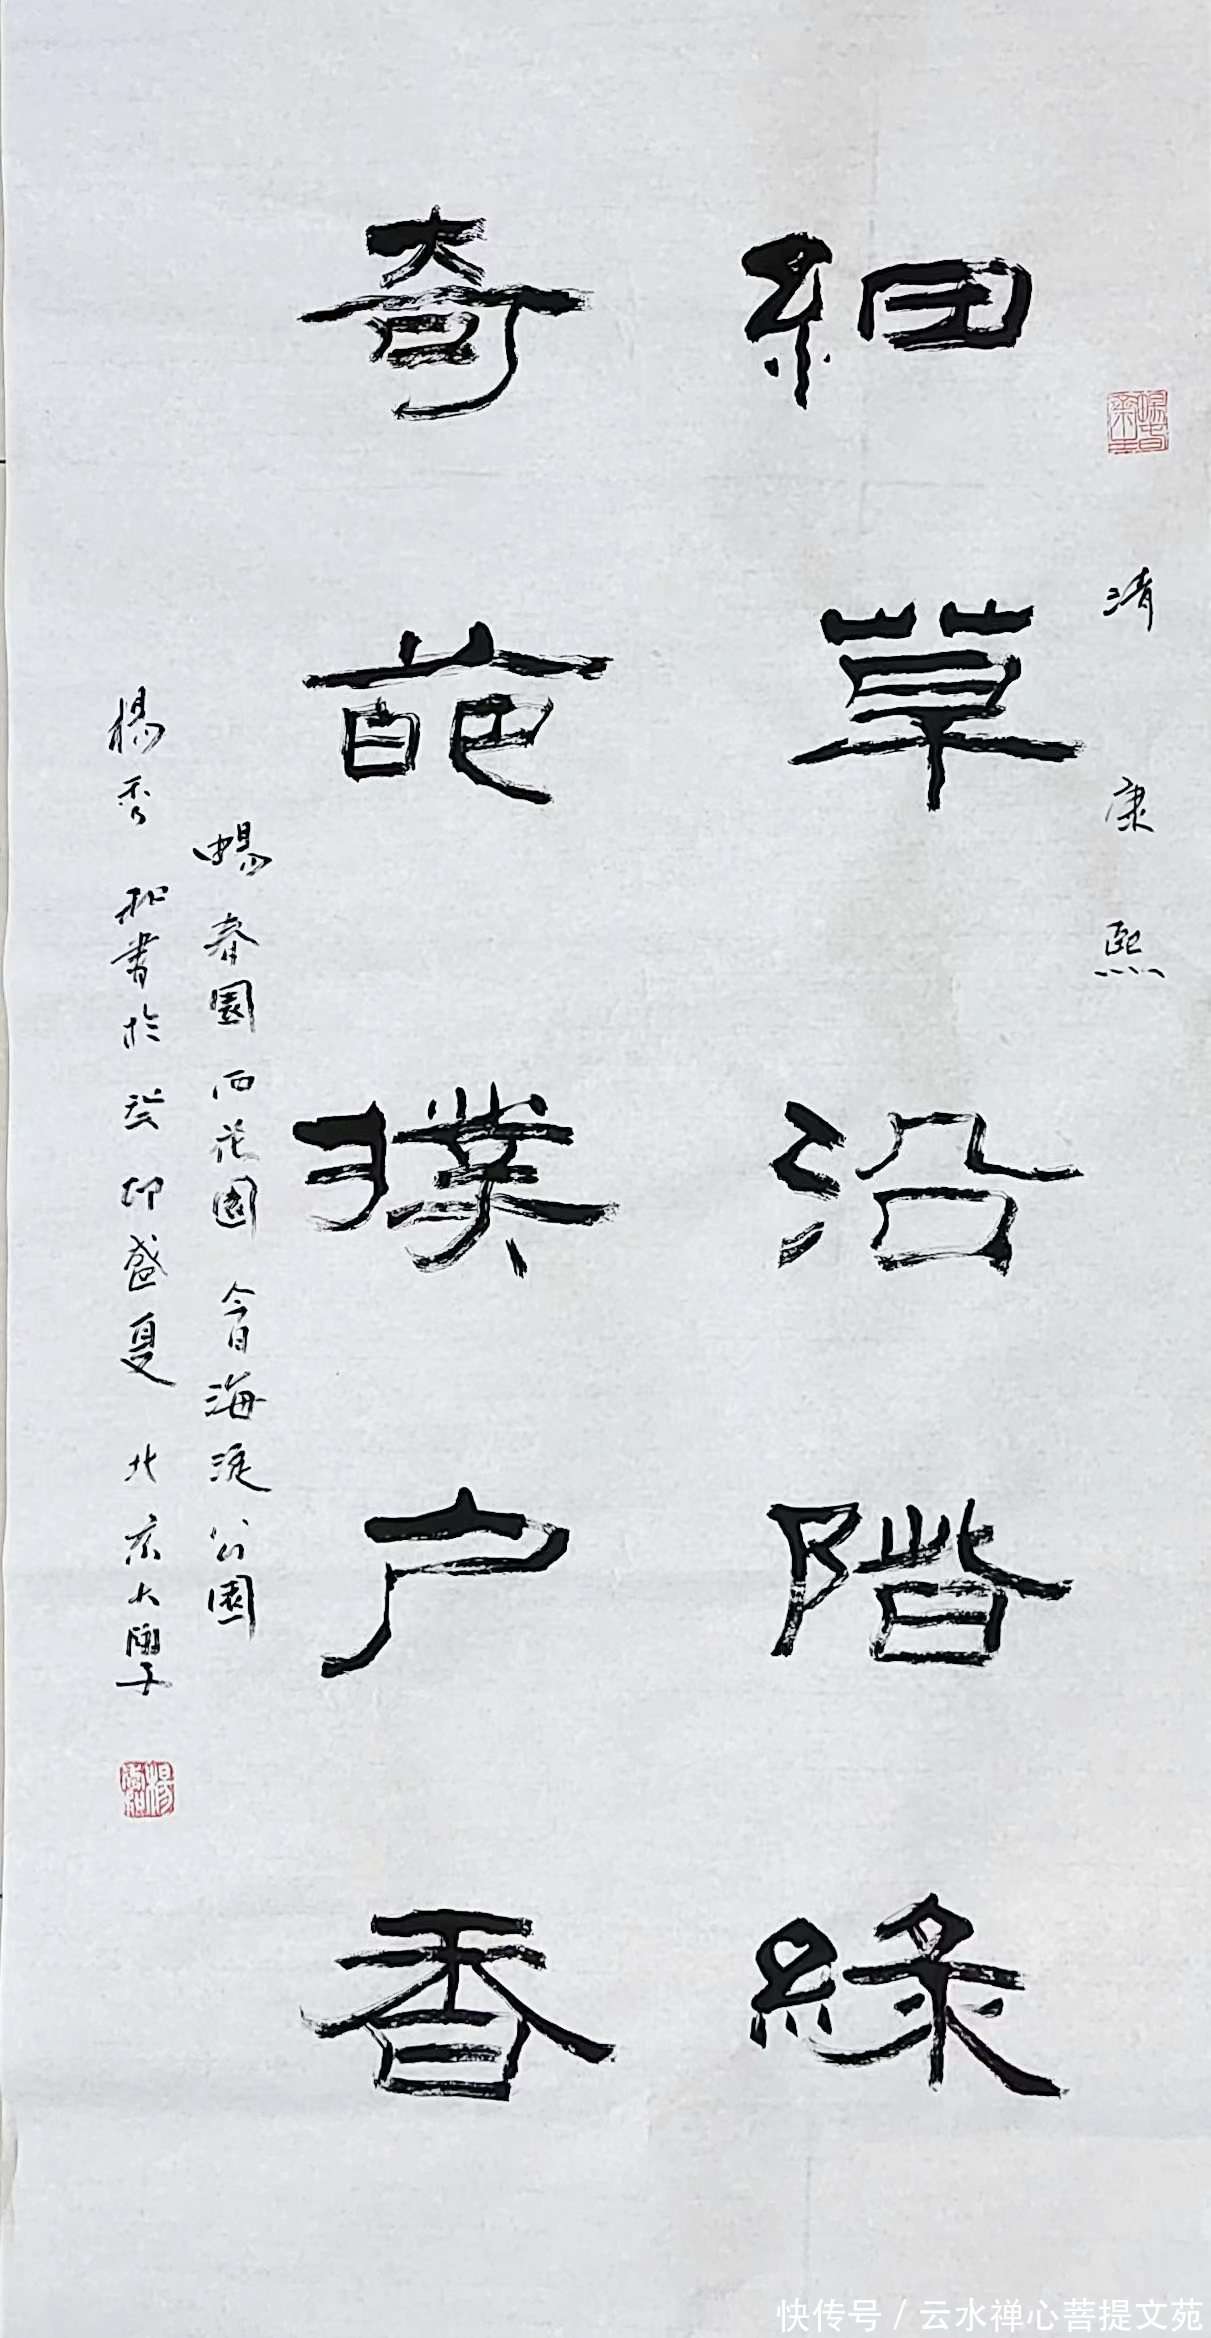 清康熙
細草沿階緑
奇葩撲户香
暢春園西花園今日海淀公園
楊秀松書於癸卯盛夏北京大學
快传号 / 云水禅心菩提文苑